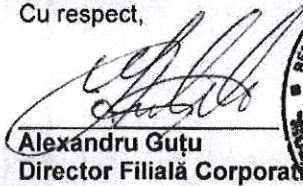 Cu respect,
Alexandru Guțu
Director Filială Corporat